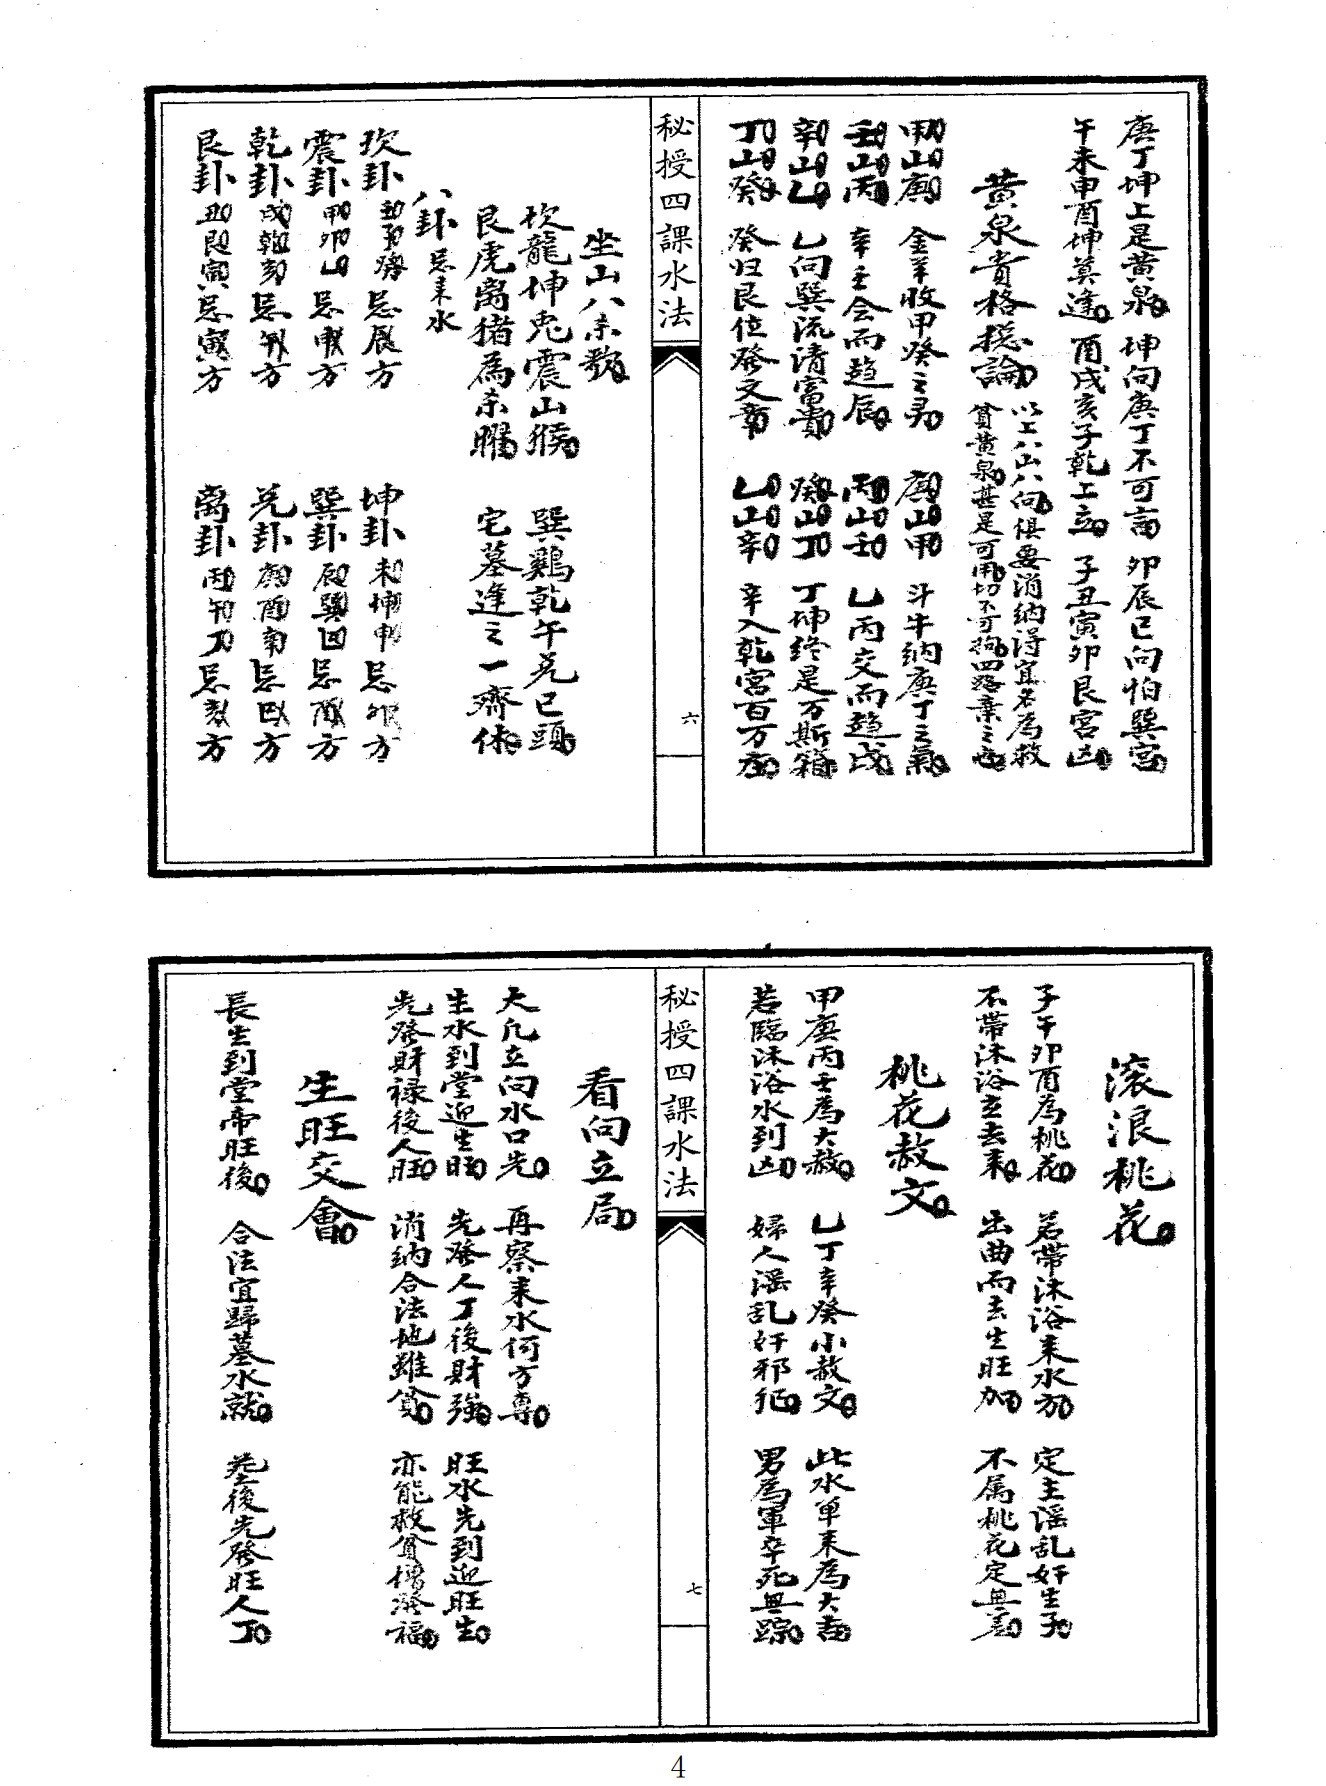 庚丁坤上是黄泉 坤向庚丁不可言 卯辰巳向怕巽宮
午未申酉坤莫逢 酉戌亥子乾上立 子丑寅卯艮宮凶
黄泉貴格総論 以上八山八向俱要消納得宜名為救
貧黄泉甚是可用切不可拘四路棄之也
甲山庚 金羊收甲癸之灵 庚山甲 斗牛纳庚丁之氣
壬山丙 辛壬会而趋辰 丙山壬 乙丙交而趋戌
辛山乙 乙向巽流清富貴 癸山丁 丁坤终是万斯箱
丁山癸 癸归艮位癹文章 乙山辛 辛入乾宮百万庄
秘授四課水法
六
坐山八杀歌
坎龍坤兎震山猴 巽鷄乾午兑巳頭
艮虎离猪為杀曜 宅墓逢之一齊休
八卦忌来水
坎卦 壬子癸 忌辰方 坤卦 未坤申 忌卯方
震卦 甲卯山 忌申方 巽卦 辰巽巳 忌酉方
乾卦 戌乾亥 忌午方 兑卦 庚酉辛 忌巳方
艮卦 丑艮寅 忌寅方 离卦 丙午丁 忌亥方
滚浪桃花
子午卯酉為桃花 若带沐浴来水方 定主淫乱奸生子
不带沐浴立去来 出曲而去生旺加 不属桃花定無差
桃花赦文
甲庚丙壬為大赦 乙丁辛癸小赦文 此水单来為大吉
若臨沐浴水到凶 婦人淫乱奸邪征 男為軍卒死無踪
秘授四課水法
七
看向立局
大凡立向水口先 再察来水何方專
生水到堂迎生旺 先癹人丁後財強 旺水先到迎旺生
先癹財禄後人旺 消纳合法地雖貧 亦能救貧增癹福
生旺交會
長生到堂帝旺後 合法宜歸墓水就 葬後先癹旺人丁
4